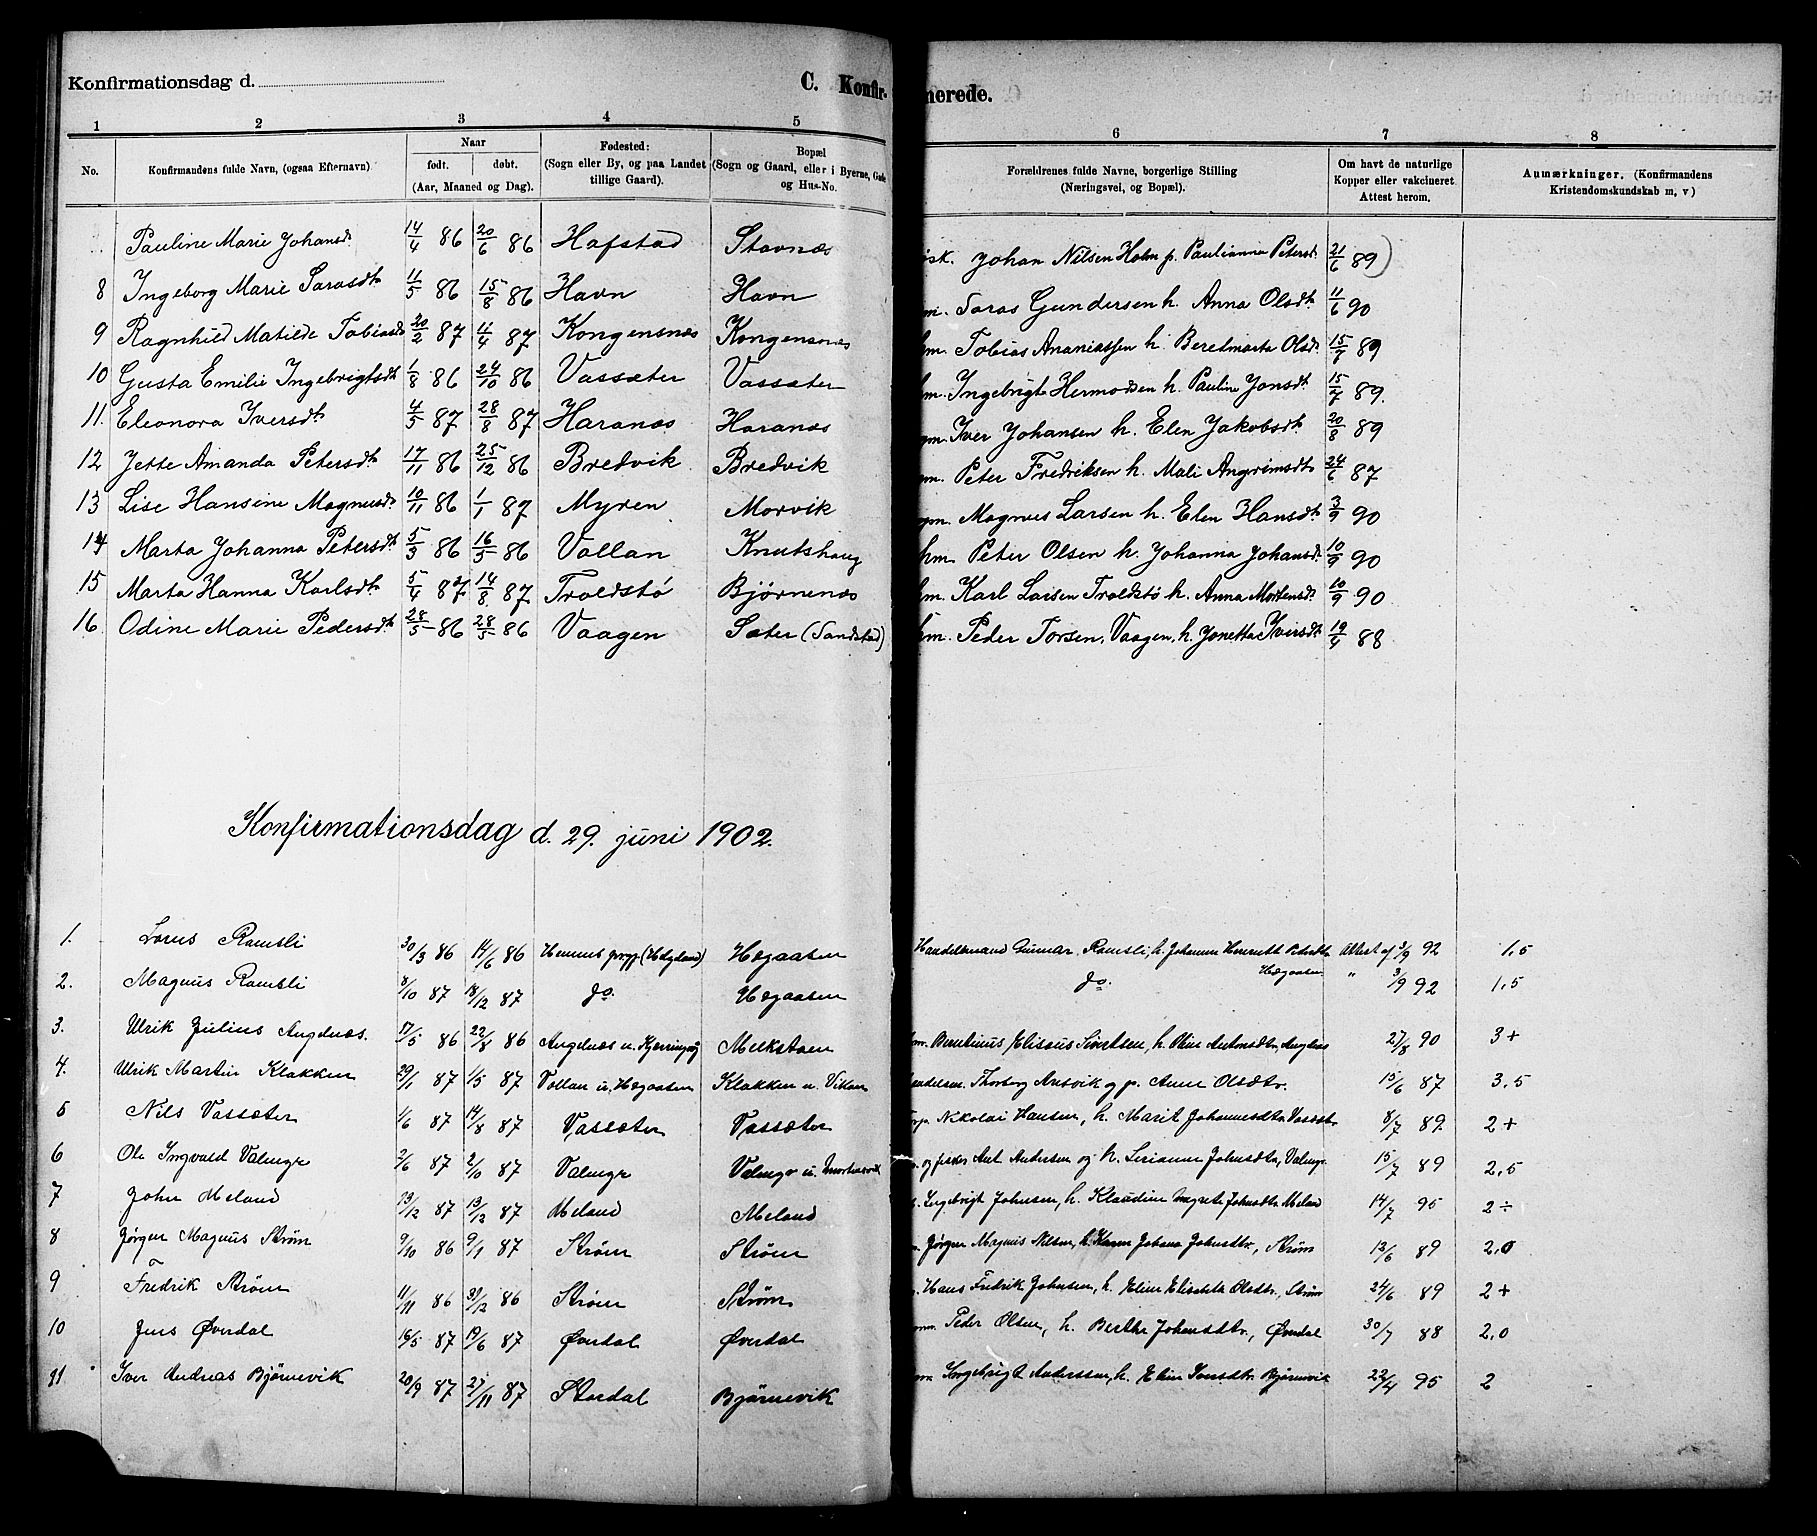 Konfirmationsdag d. C. Konfir- merede.
1 2 3 4 5 6 7 8
No. Konfirmandens fulde Navn, (ogsaa Efternavn) Naar født. døbt. (Aar, Maaned og Dag). Fødested: (Sogn eller By, og paa Landet tillige Gaard). Bopæl (Sogn og Gaard, eller i Byerne, Gade og Hus-No. Forældrenes fulde Navne, borgerlige Stilling (Næringsvei, og Bopæl). Om havt de naturlige Kopper eller vakcineret Attest herom. Anmærkninger. (Konfirmandens Kristendomskundskab m, v)
Pauline Marie Johansdt 14/4 86 20/6 86 Hafstad Stavnæs Johan Nilsen Holm p. Paulianna Petersd. 21/6 89)
8 Ingeborg Marie Sarasdt 11/5 86 15/8 86 Havn Havn m. Saras Gundersen h. Anna Olsdt 11/6 90
9 Ragnhild Matilde Tobiasd 20/2 87 11/4 87 Kongensnæs Kongensnæs m. Tobias Ananiassen h. Beretmarta Olsd. 15/7 89
10 Gusta Emilie Ingebrigtsdt 1/8 86 24/10 86 Vassæter Vassæter m. Ingebrigt Hermodsen h. Pauline Jonsdt. 15/7 89.
11. Eleonora Iversdt 4/5 87 28/8 87 Haranæs Haranæs gm. Iver Johansen h. Elen Jakobsdt 20/8 89
12 Jette Amanda Petersdt 17/11 86 25/12 86 Bredvik Bredvik gm. Peter Fredriksen h. Mali Angrimsdt 24/6 87
13 Lise Hansine Magnusd. 10/11 86 1/1 87 Myren Morvik gm. Magnus Larsen h. Elen Hansdt 3/9 90
14 Marta Johanna Petersdt 5/3 86 16/5 86 Vollan Knutshaug hm. Peter Olsen h. Johanna Johansd. 10/9 90
15 Marta Hanna Karlsdt 5/4 87 14/8 87 Troldstø Bjørnenæs hm. Karl Larsen Troldstø h. Anna Mortensd. 10/9 90
16 Odine Marie Pedersdt 28/5 86 28/5 86 Vaagen Sæter (Sandstad) hm. Peder Torsen, Vaagen, h. Jonetta Iversdt 19/4 88
Konfirmationsdag d. 29. juni 1902.
1. Lorus Ramsli 30/3 86 14/6 86 Hemnes prgj. (Helgeland) Høgaasen Handelsmand Gunnar Ramsli, h. Johanna Attest af 3/9 92 1,5
2. Magnus Ramsli 8/10 87 18/12 87 do. Høgaasen do. Høgaasen " 3/9 92 1,5
3. Ulrik Julius Angelnæs. 17/5 86 22/8 86 Angelnæs u. Kjerringvåg Melkstaen Elisæus Sivertsen, h. Oline 27/8 90 3+
4. Ulrik Martin Klakken 29/1 87 1/5 87 Vollan u. Høgaasen Klakken u. Vikan Thorberg Ansvik og p. Anne Olsdtr. 15/6 87 3.5
5 Nils Vassæter 1/6 87 14/8 87 Vassæter Vassæter Nikolai Hansen, h. Marit Johannesdtr. Vassætr 8/7 89. 2+
6 Ole Ingvald Valenge 2/6 87 2/10 87 Valenge Valenge u. og fisker Ant. Andersen og h. Johnsdtr, Valenge 15/7 89 2,5
7 John Meland 13/12 87 13/12 87 Meland Meland Ingebrigt Johnsen, h. Klaudine Margrete Johnsdtr. Meland 14/7 95 2÷
8 Jørgen Magnus Strøm 9/10 86 9/1 87 Strøm Strøm Jørgen Magnus Nilsen, h. Karen Johana Johnsdtr., Strøm 13/6 89 2,0
9 Fredrik Strøm 11/11 86 31/12 86 Strøm Strøm Hans Fredrik Johnsen, h. Eline Elisabeth Olsdtr., Strøm 24/6 89 2+
10 Jens Øverdal 16/5 87 19/6 87 Øverdal Øverdal gm. Peder Olsen, h. Berthe Johnsdtr., Øverdal 30/7 88 2,0
11 Iver Andreas Bjørnevik 20/9 87 27/11 87 Stordal Bjørnevik gm. Ingebrigt Anderssen, h. Elen Iversdtr. Bjørnevik 22/4 95 2